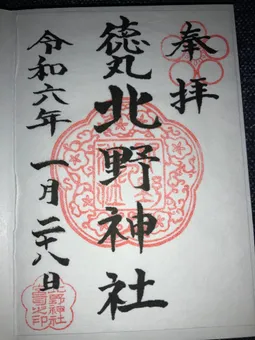 奉拝
徳丸
北野神社
令和六年 一月二十八日